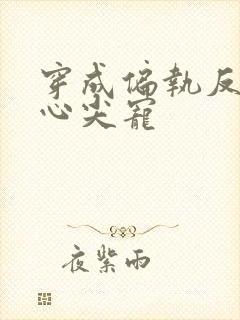 穿成偏執反
心尖寵
夜紫雨